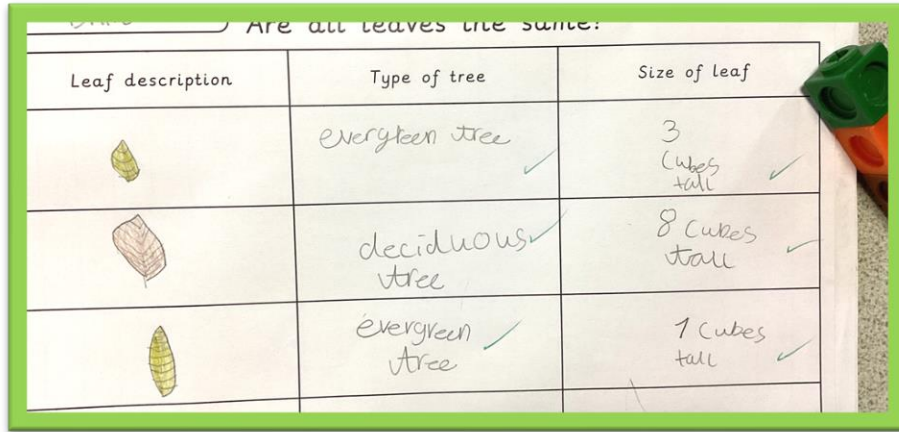 Are all leaves the same?
Leaf description Type of tree Size of leaf
evergreen tree
3
Cubes
tall
deciduous
tree
8 Cubes
tall
evergreen
tree
1 Cubes
tall